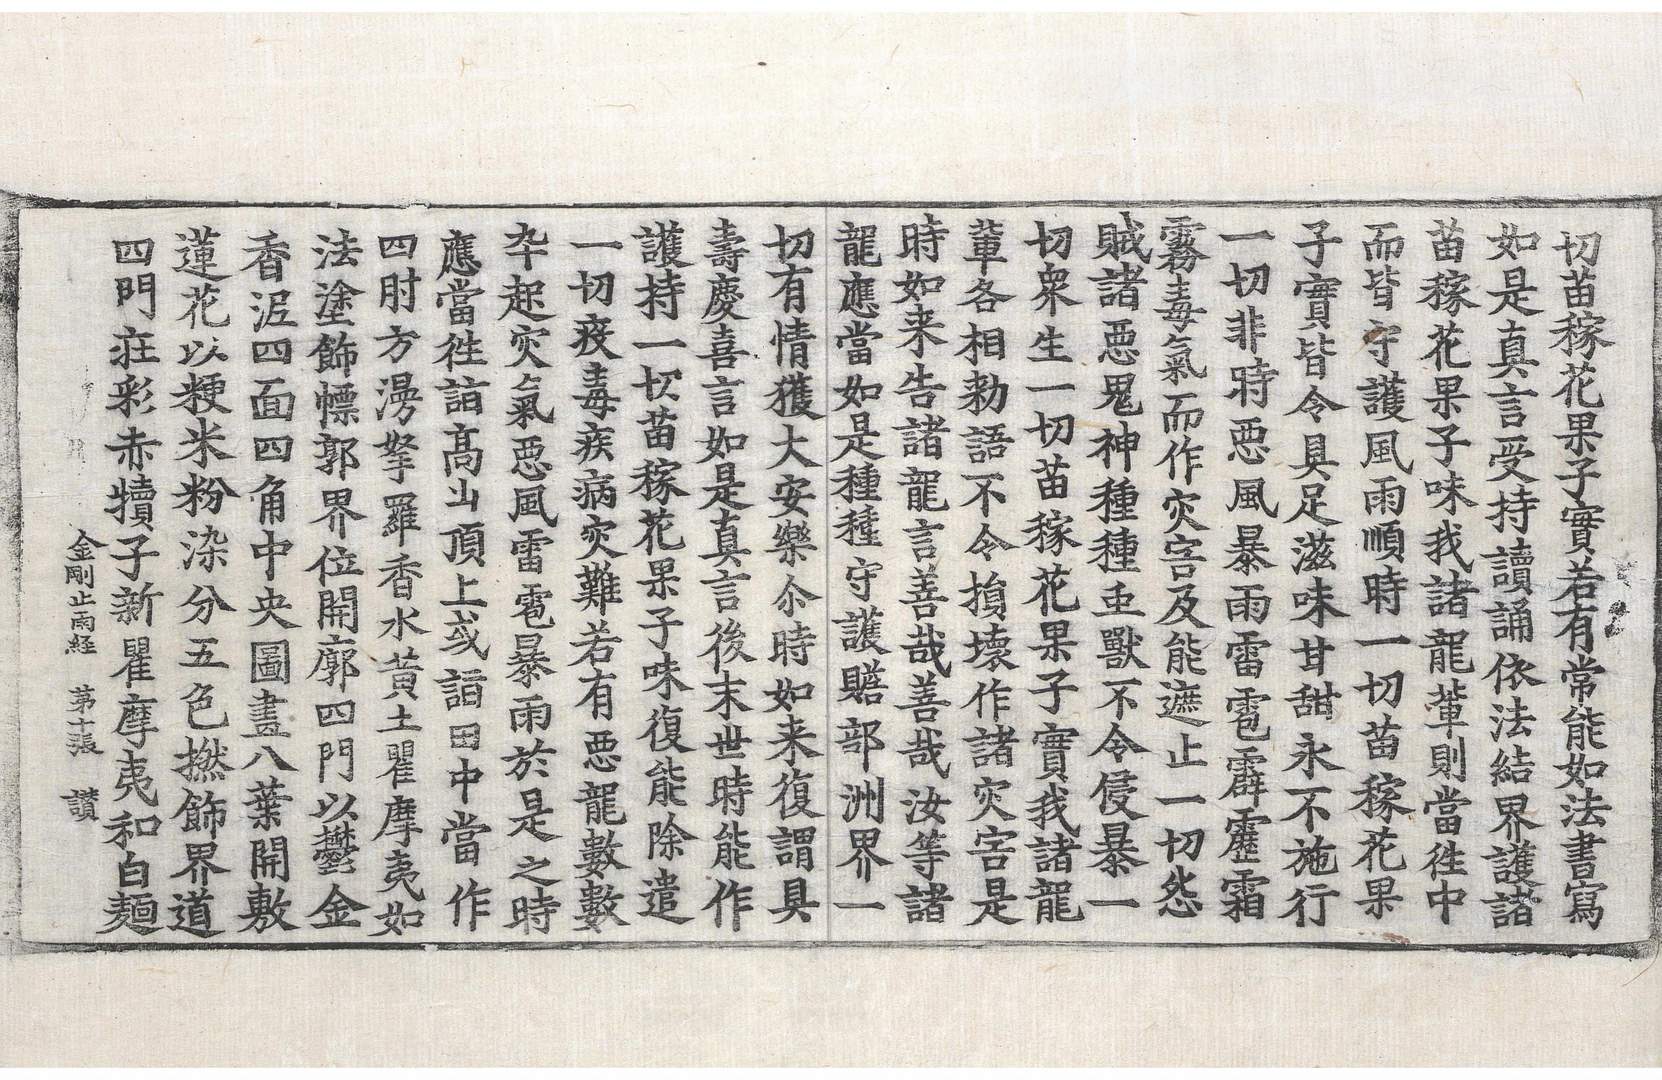 切苗稼花果子實若有常能如法書寫
如是真言受持讀誦依法結界護諸
苗稼花果子味我諸龍軰則當徃中
而皆守護風雨順時一切苗稼花果
子實皆令具足滋味甘甜永不施行
一切非時惡風暴雨雷雹霹靂霜
霧毒氣而作灾害及能遮止一切怨
賊諸惡鬼神種種虫獸不令侵暴一
切衆生一切苗稼花果子實我諸龍
軰各相勑語不令損壞作諸灾害是
時如来告諸龍言善哉善哉汝等諸
龍應當如是種種守護贍部洲界一
切有情獲大安樂尒時如来復謂具
壽慶喜言如是真言後末世時能作
護持一切苗稼花果子味復能除遣
一切疫毒疾病灾難若有惡龍數數
卒起灾氣惡風雷雹暴雨於是之時
應當徃詣高山頂上或詣田中當作
四肘方漫拏羅香水黃土瞿摩夷如
法塗飾幖郭界位開廓四門以欝金
香泥四面四角中央圖畫八葉開敷
蓮花以粳米粉染分五色撚飾界道
四門莊彩赤犢子新瞿摩夷和白麵
金剛止雨経 第十張 讃